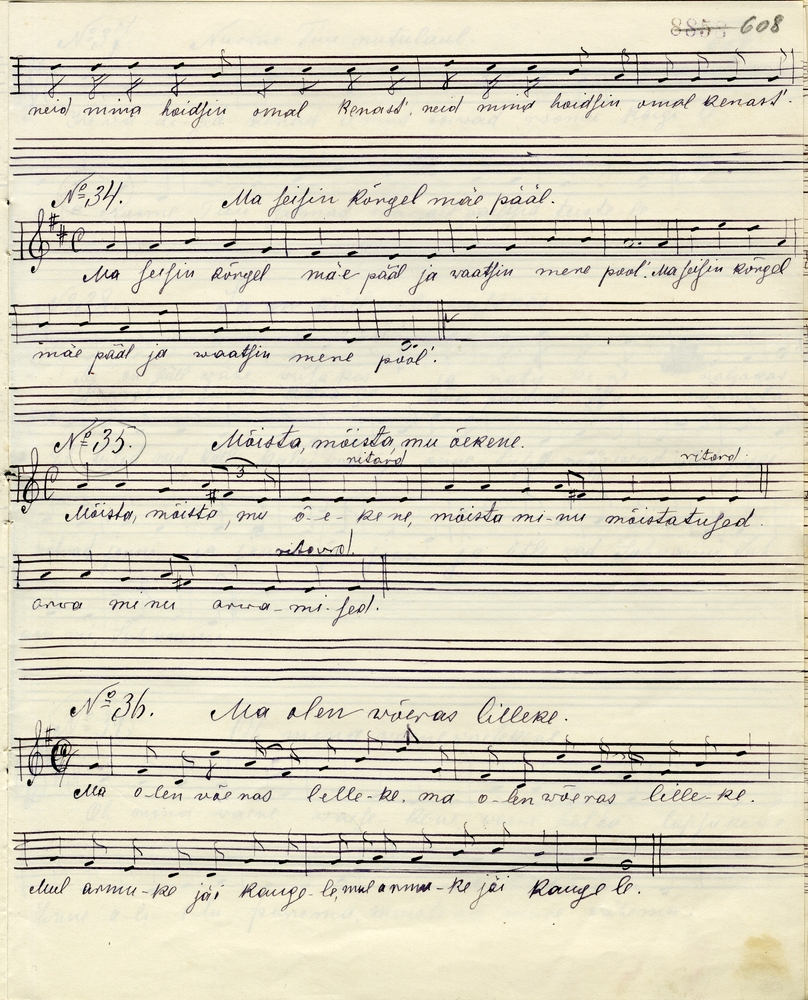 8858 608
neid mina hoidsin omal kenast', neid mina hoidsin omal kenast'.
№ 34. Ma seisin kõrgel mäe pääl.
Ma seisin kõrgel mäe pääl ja waatsin mere pool'. Ma seisin kõrgel
mäe pääl ja waatsin mere pool'.
№ 35. Mõista, mõista, mu õekene.
ritard ritard.
3
Mõista, mõista, mu õ-e-kene, mõista mi-nu mõistatused.
ritard.
arwa minu arwa-mi-sed.
№ 36. Ma olen võeras lilleke.
Ma o-len võeras lille-ke. ma o-len võeras lille-ke.
Mul armu-ke jäi kauge-le, mul armu-ke jäi kauge le.